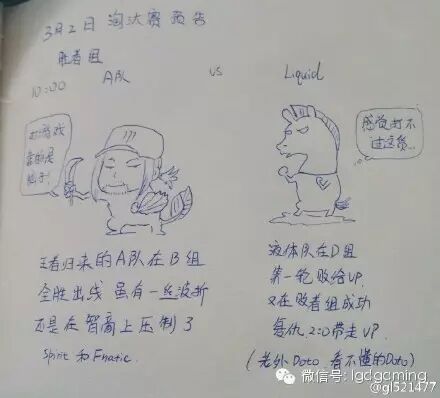 3月2日 淘汰赛预告
胜者组
10:00 A队 vs Liquid
打游戏
靠的是
脑子!
感觉打不
过这货...
王者归来的A队在B组
全胜出线 虽有一丝波折
还是在智商上压制了
Spirit 和 Fnatic.
液体队在D组
第一轮败给VP.
又在败者组成功
复仇 2:0带走VP.
(老外Doto 看不懂的Doto)
微信号: lgdgaming
@gl521477